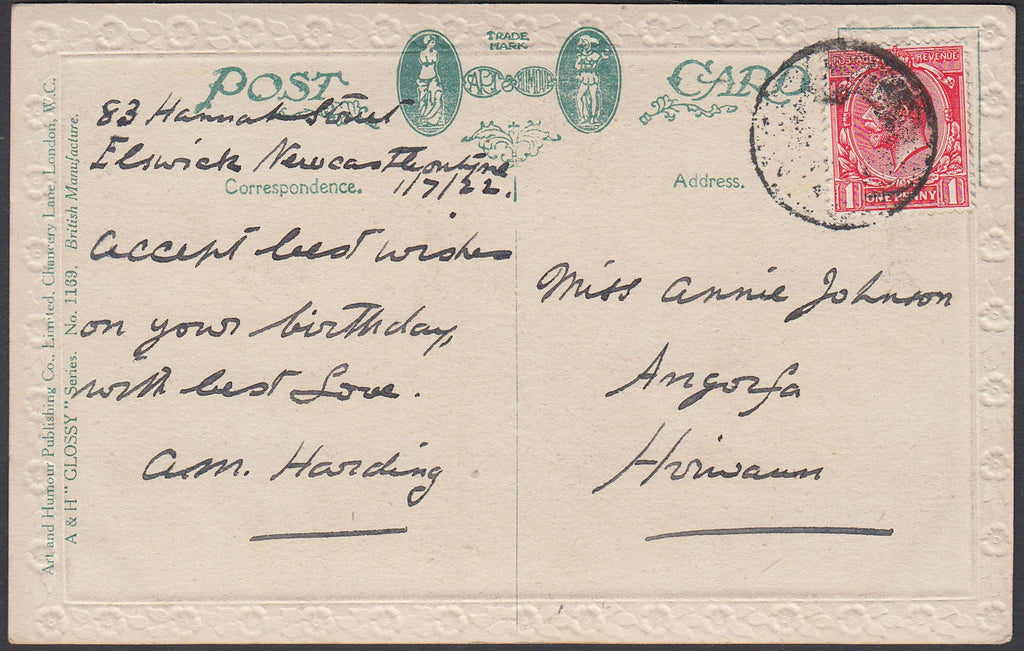 TRADE
MARK
POST ART & HUMOUR CARD
POSTAGE REVENUE
1 ONE PENNY 1
83 Hannah Street
Elswick Newcastleontyne
1/7/22.
Correspondence.
Address.
accept best wishes
on your birthday,
with best Love.
a.m. Harding
Miss annie Johnson
Angorfa
Hirwaun
Art and Humour Publishing Co., Limited, Chancery Lane, London, W.C.
A & H "GLOSSY" Series. No. 1169. British Manufacture.